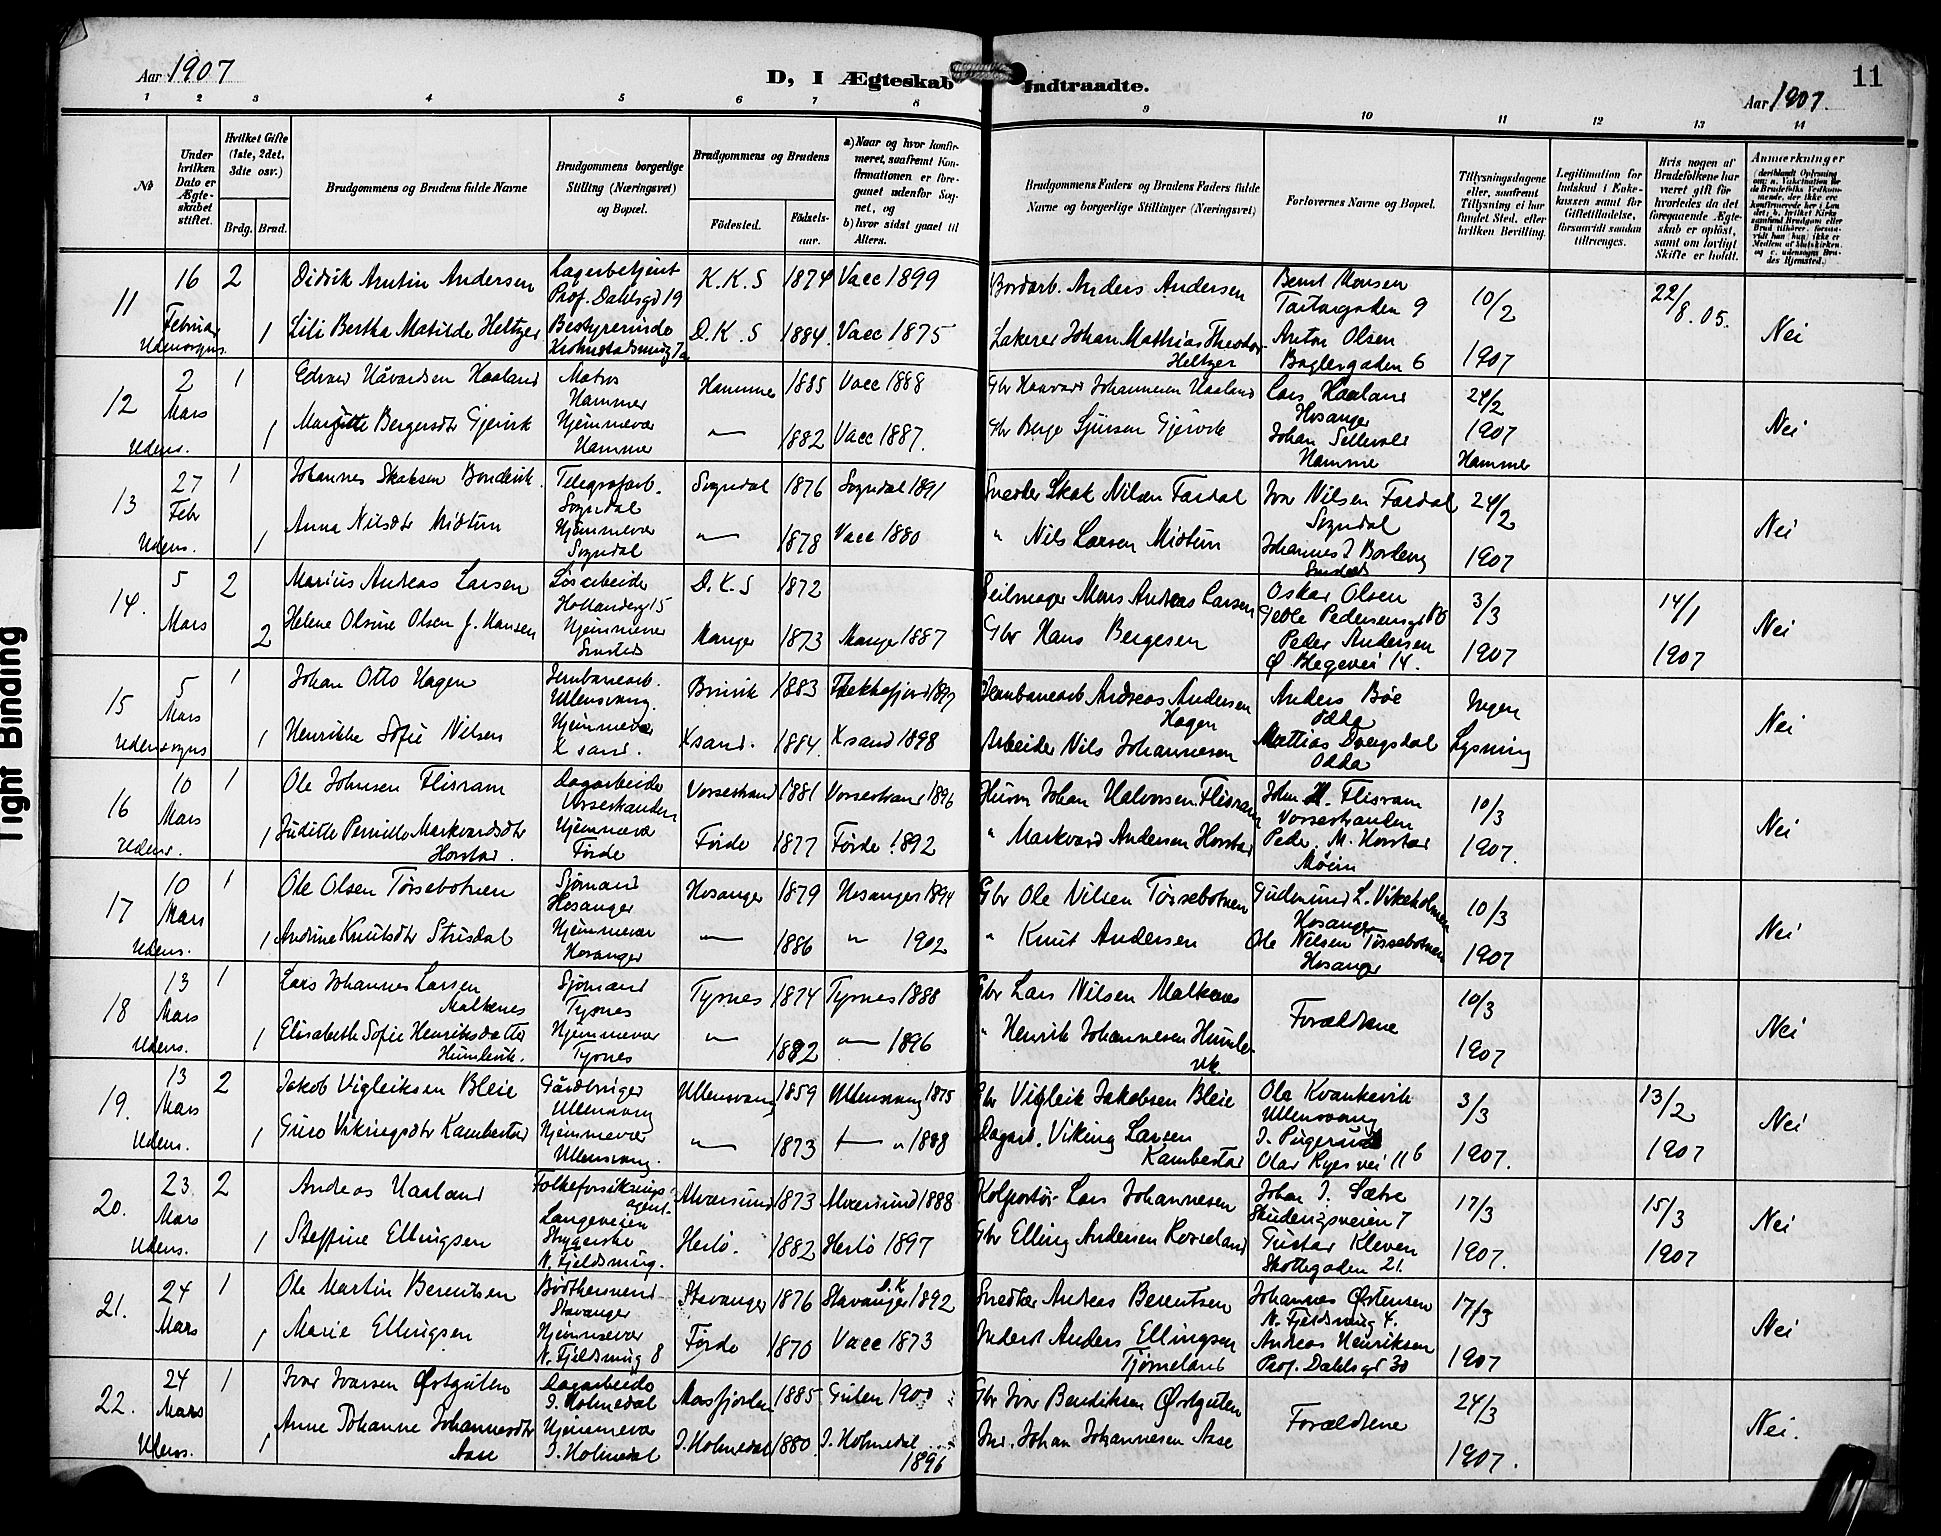 Aar 1907
D, I Ægteskab Indtraadte.
Aar 1907.
11
1 2 3 4 5 6 7 8 9 10 11 12 13 14
No
Under hvilken Dato er Ægteskabet stiftet.
Hvilket Gifte (1ste, 2det, 3die osv.)
Brdg. Brud.
Brudgommens og Brudens fulde Navne
Brudgommens borgerlige Stilling (Næringsvei) og Bopæl.
Brudgommens og Brudens
Fødested.
Fødselsaar.
a) Naar og hvor konfirmeret, saafremt Konfirmationen er foregaaet udenfor Sognet, og
b) hvor sidst gaaet til Alters.
Brudgommens Faders og Brudens Faders fulde Navne og borgerlige Stillinger (Næringsvei)
Forlovernes Navne og Bopæl.
Tillysningsdagene eller, saafremt Tillysning ei har fundet Sted, efter hvilken Bevilling.
Legitimation for Indskud i Enkekassen samt for Giftetilladelse, forsaavidt saadan tiltrænges.
Hvis nogen af Brudefolkene har været gift før hvorledes da det foregaaende Ægteskab er opløst, samt om lovligt Skifte er holdt.
Anmerkninger
11 16 Februar 2 Didrik Andersen Lagerbetjent Prof. Dahlsgd 19 K.K.S 1874 Vacc 1899 Bordarb. Anders Andersen Bernt Monsen Tartargaden 9 10/2 22/8. 05.
Udensogns. 1 Lili Bertha Matilde Heltzer Bestyrerinde D.K.S 1884 Vacc 1875 Lakerer Johan Mathias Theodor Heltzer Anton Olsen Baglergaden 6 1907 Nei
12 2 Mars 1 Edvard Håvardsen Haaland Matros Hammer Hammer 1885 Vacc 1888 Gbr Haavard Johannesen Haaland Lars Haaland Hosanger 24/2
Udens. 1 Bergersdtr Gjervik Hjemmevær Hammer — 1882 Vacc 1887. Gbr Berge Sjursen Gjervik Johan Hammer 1907 Hammer Nei
13 27 Febr 1 Johannes Skaksen Telegrafarb. Sogndal Sogndal 1876 Sogndal 1891 Snedker Skak Nilsen Fardal Ivar Nilsen Fardal Sogndal 24/2
Udens. 1 Anna Nilsdtr Midtun Hjemmevær Sogndal — 1878 Vacc 1880 " Nils Larsen Midtun Johannes J 1907 Nei
14. 5 Mars 2 Marius Andreas Larsen Løsarbeider Hollanderg 15 D.K.S 1872 Seilmager Mons Andreas Larsen Oskar Olsen Geble Pedersensgd 3/3 14/1
2 Helene Olsine Olsen f. Hansen Hjemmevær Manger 1873 Manger 1887 Gbr Hans Bergesen Peder Andersen Ø. Blegevei 14. 1907 1907 Nei
15 5 Mars 1 Johan Otto Hagen Jernbanearb. Ullensvang. 1883 Jernbanearb. Andreas Andersen Hagen Anders Bøe Odda Ingen
Udensogns 1 Henrikke Sofie Nilsen Hjemmevær Xsand. Xsand. 1884. Xsand 1898 Arbeider Nils Johannesen Mattias Odda Lysning Nei
16 10 Mars 1 Ole Johnsen Flisram Dagarbeider Vossestranden Vossestrand 1881 Vossestrand 1896 Husm Johan Halvorsen Flisram John H. Flisram Vossestranden 10/3
Udens. 1 Juditte Pernille Markvardsdtr Horstad. Hjemmevær Førde Førde 1877 Førde 1892 " Markvard Andersen Horstad Peder M. Horstad 1907. Nei
17 10 Mars 1 Ole Olsen Tørsebotnen Sjømand Hosanger Hosanger 1879 Hosanger 1894 Gbr Ole Nilsen Tørsebotnen Gudmund L. Vikeholmen Hosanger 10/3
Udens. 1 Andrine Knutsdtr Hjemmevær Hosanger — 1886 " 1902 " Knut Andersen Ole Nilsen Tørsebotnen Hosanger 1907 Nei
18 13 Mars 1 Lars Johannes Larsen Malkenes Sjømand Tysnes Tysnes 1874 Tysnes 1888 Gbr Lars Nilsen Malkenes Forældrene 10/3
Udens. 1 Elisabeth Sofie Henriksdatter Humlevik. Hjemmevær Tysnes — 1882 — 1896 " Henrik Johannesen Humlevik 1907 Nei
19. 13 Mars 2 Jakob Vigleiksen Bleie Gårdbruger Ullensvang Ullensvang 1859 Ullensvang 1875 Gbr Vigleik Jakobsen Bleie Ola Kvankevik Ullensvang 3/3 13/2
Udens. 1 Guro Vikingsdtr Kambestad Hjemmevær Ullensvang. — 1873 — " 1888 Dagarb. Viking Larsen Kambestad Olav Ryes vei 11 b 1907. 1907 Nei
20. 23 Mars 2 Andreas Haaland Folkeforsikringsagent. Langeveien Alversund 1873 Alversund 1888 Kolportør Lars Johannesen Johan J. Sætre Skuteviksveien 7 17/3 15/3
Udens. 1 Steffine Ellingsen N. Fjeldsmug. Herlø. 1882 Herlø 1897 Gbr Elling Andersen Rosseland Gustav Kleven Skottegaden 21. 1907. 1907 Nei
21. 24 Mars 1 Ole Martin Berentsen Stavanger Stavanger 1876 Stavanger D.K 1892 Snedker Andreas Berentsen Johannes Østensen N. Fjeldsmug 4. 17/3
1 Marie Ellingsen Hjemmevær N. Fjeldsmug 8 Førde 1870 Vacc 1873 Anders Ellingsen Tjørneland Andreas Henriksen Prof. Dahlsgd 30 1907 Nei
22. 24 Mars 1 Ivar Ivarsen Østguten Dagarbeider I. Holmedal Masfjorden 1885 Gulen 1900 Gbr Ivar Bendiksen Østguten Forældrene 24/3
Udens. 1 Anne Johanne Johannesdtr Aase Hjemmevær I. Holmedal I. Holmedal 1880. I. Holmedal 1896 Johan Johannesen Aase 1907. Nei.
Tight Binding